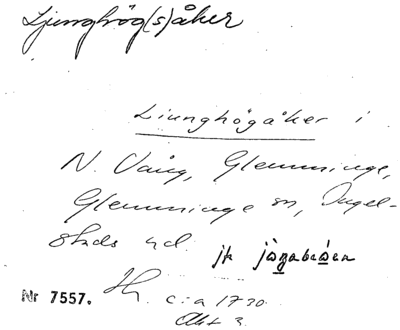 Ljunghög(s)åker
Liunghögåker i
N. Vång, Glemminge,
Glemminge sn, Ingel-
stads hd. jfr
Nr 7557. c:a 1770
Akt 3.